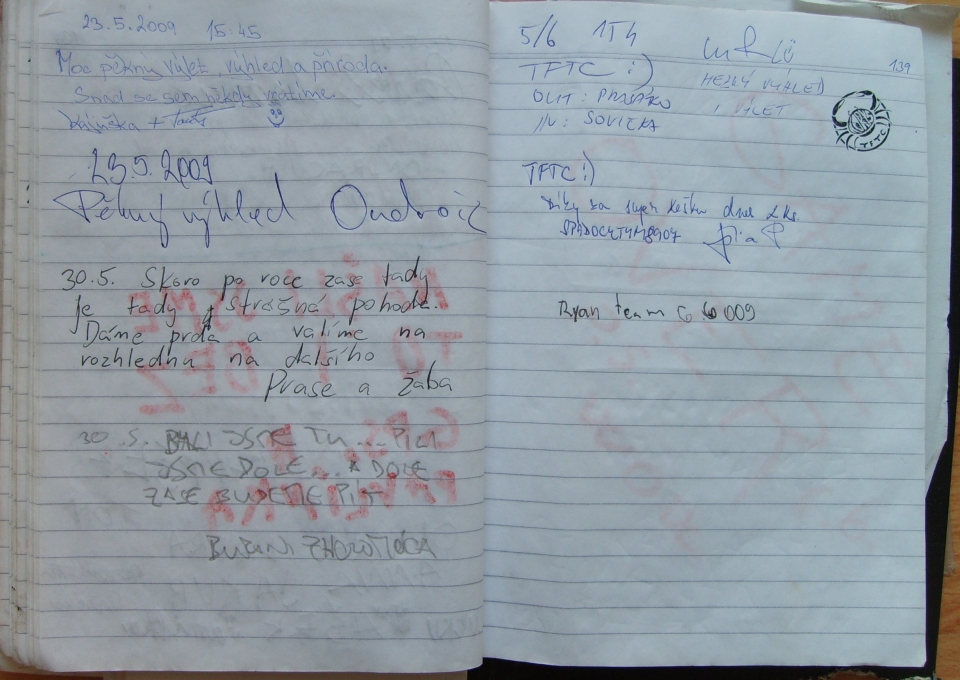 23.5.2009 15:45
Moc pěkný výlet, výhled a příroda.
Snad se sem někdy vrátíme.
23.5.2009
Pěkný výhled
30.5. Skoro po roce zase tady
je tady strašná pohoda.
Dáme prda a valíme na
rozhlednu na dalšího
Prase a žaba
30.5. BYLI JSME TU.... PILI
JSME DOLE... A DOLE
ZASE BUDEME PÍT
5/6
TFTC :)
OUT:
IN: SOVIČKA
HEZKÝ VÝHLED
I VÝLET
139
TFTC
TFTC :)
Díky za super kešku dnes 2 ks.
Ryan team 6 6 009